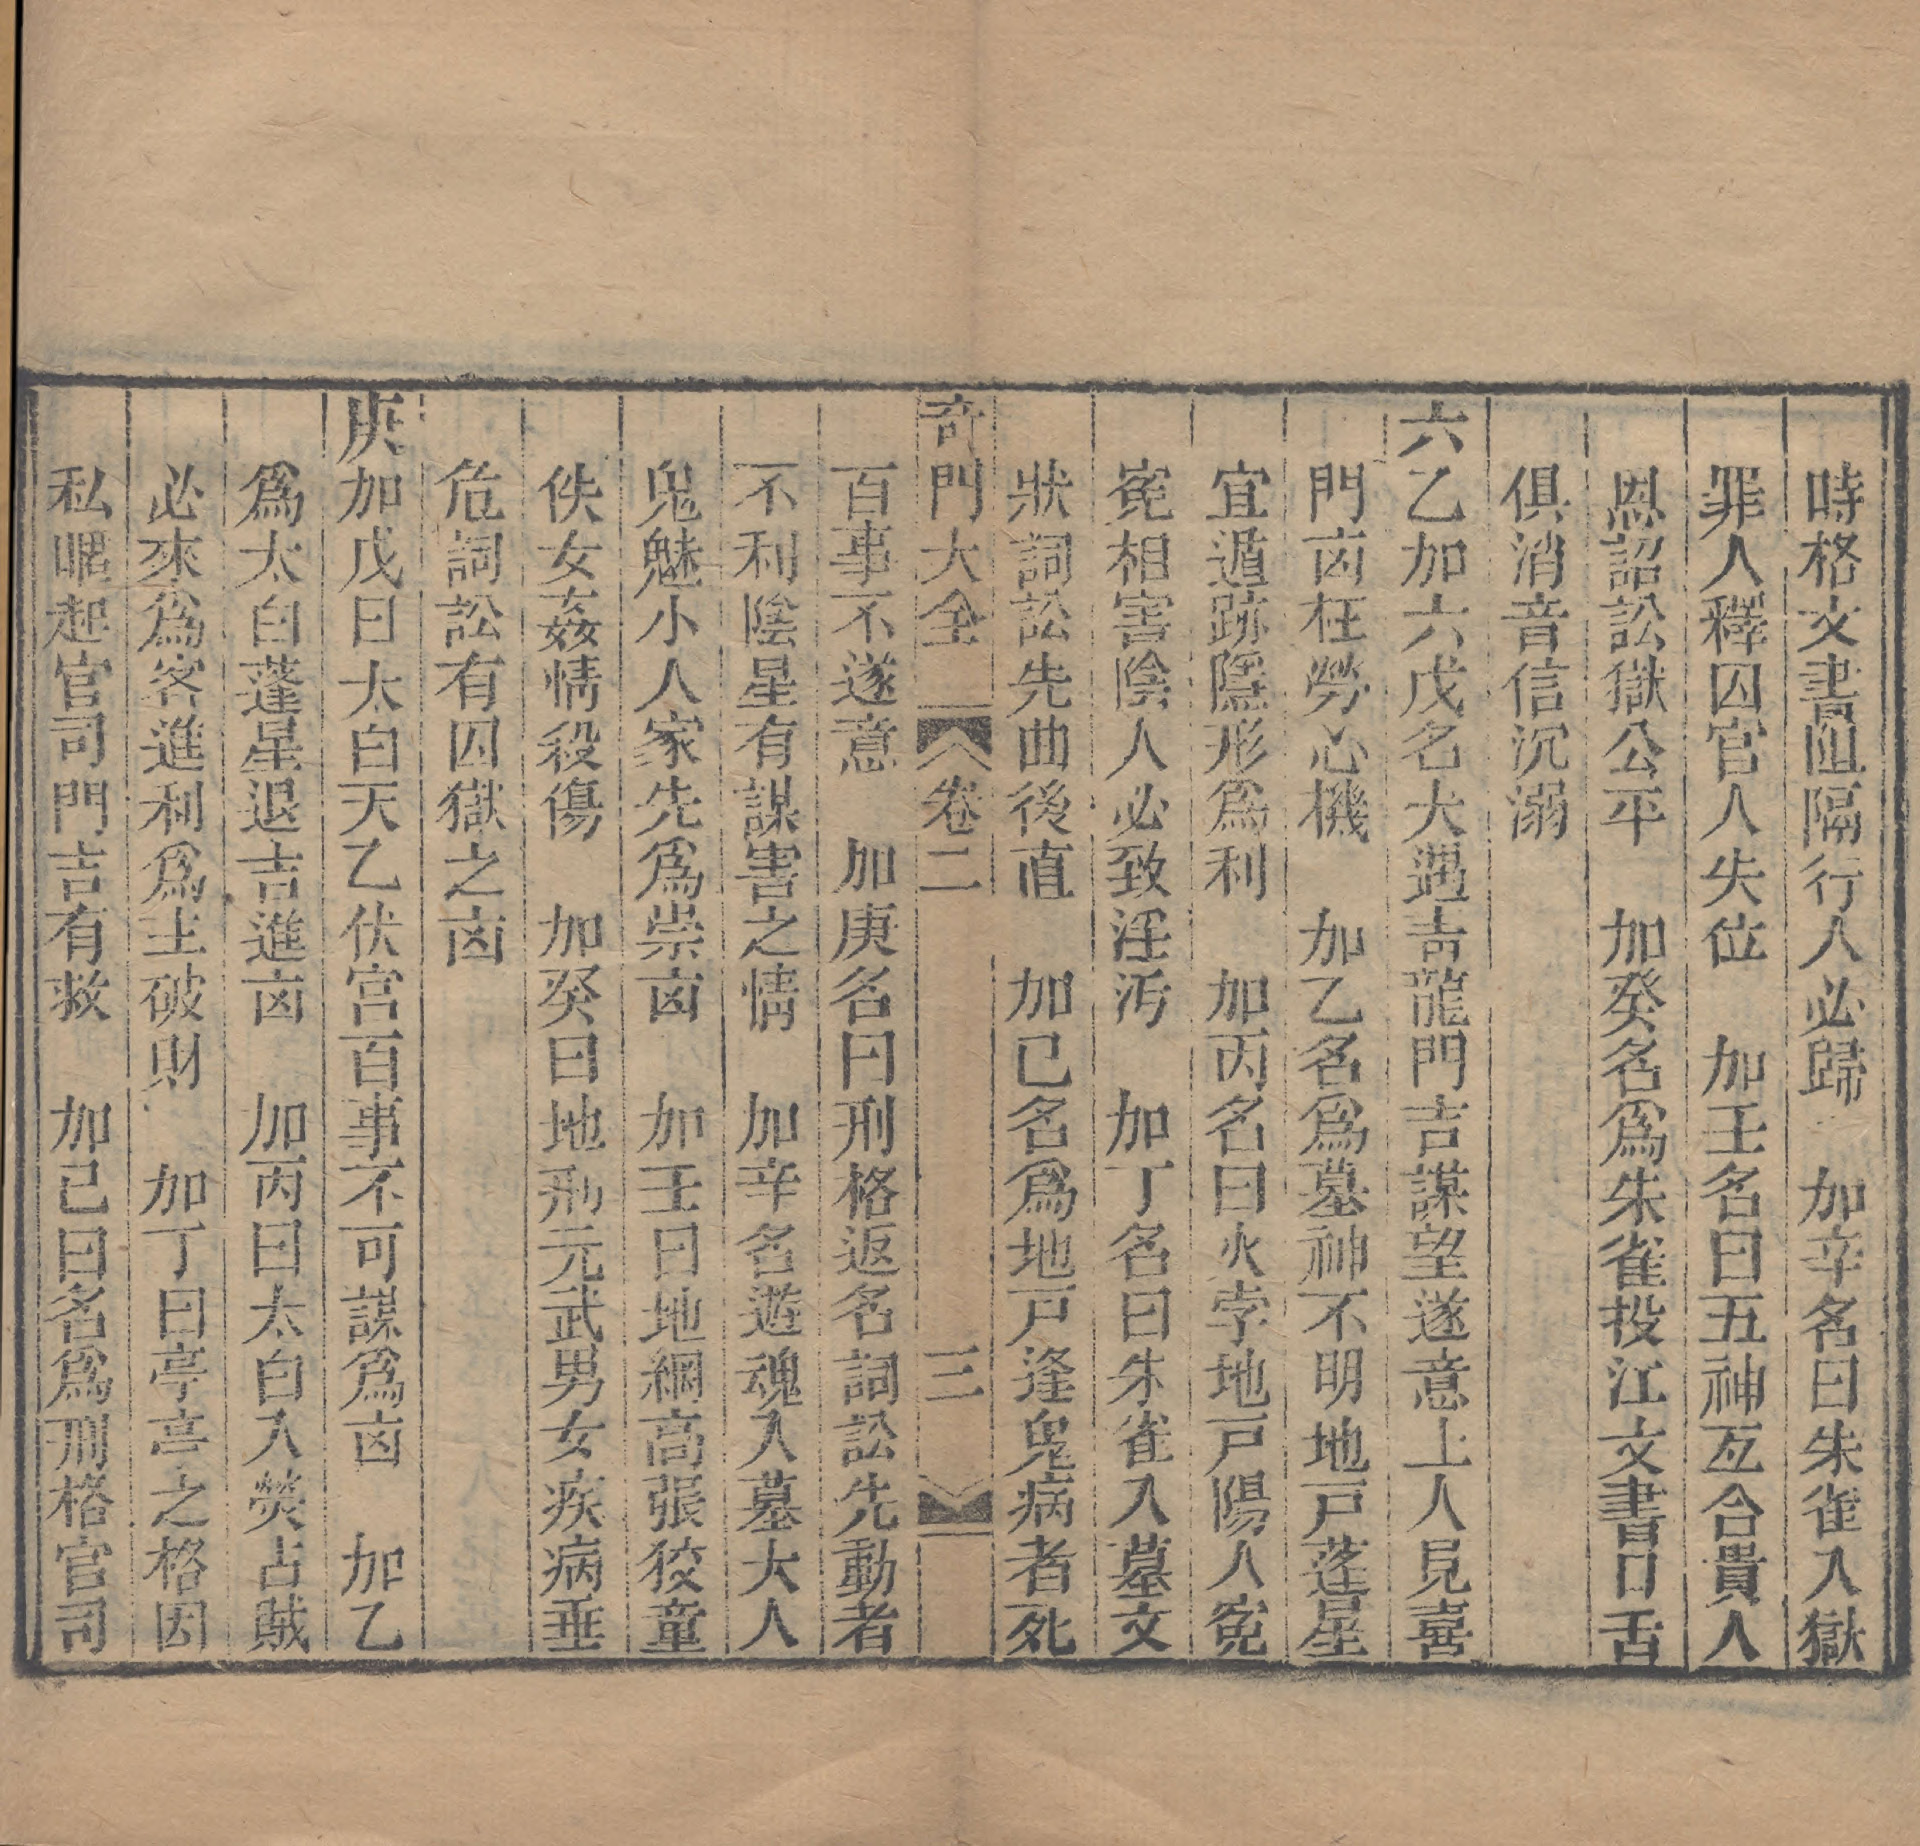 時格文書阻隔行人必歸　加辛名曰朱雀入獄
罪人釋囚官人失位　加壬名曰五神互合貴人
恩詔訟獄公平　加癸名爲朱雀投江文書口舌
俱消音信沉溺
六乙加六戊名大遇靑龍門吉謀望遂意上人見喜
門㐫枉勞心機　加乙名爲墓神不明地戸蓬星
宜遁跡隱形爲利　加丙名曰火孛地戸陽人寃
寃相害陰人必致淫汚　加丁名曰朱雀入墓文
狀詞訟先曲後直　加己名爲地戸逢鬼病者死
奇門大全　卷二　三
百事不遂意　加庚名曰刑格返名詞訟先動者
不利陰星有謀害之情　加辛名遊魂入墓大人
鬼魅小人家先爲崇㐫　加壬曰地網高張狡童
佚女姦情殺傷　加癸曰地刑元武男女疾病垂
危詞訟有囚獄之㐫
庚加戊曰太白天乙伏宮百事不可謀爲㐫　加乙
爲太白蓬星退吉進㐫　加丙曰太白入熒占賊
必來爲客進利爲主破財　加丁曰亭亭之格因
私暱起官司門吉有救　加己曰名爲刑格官司